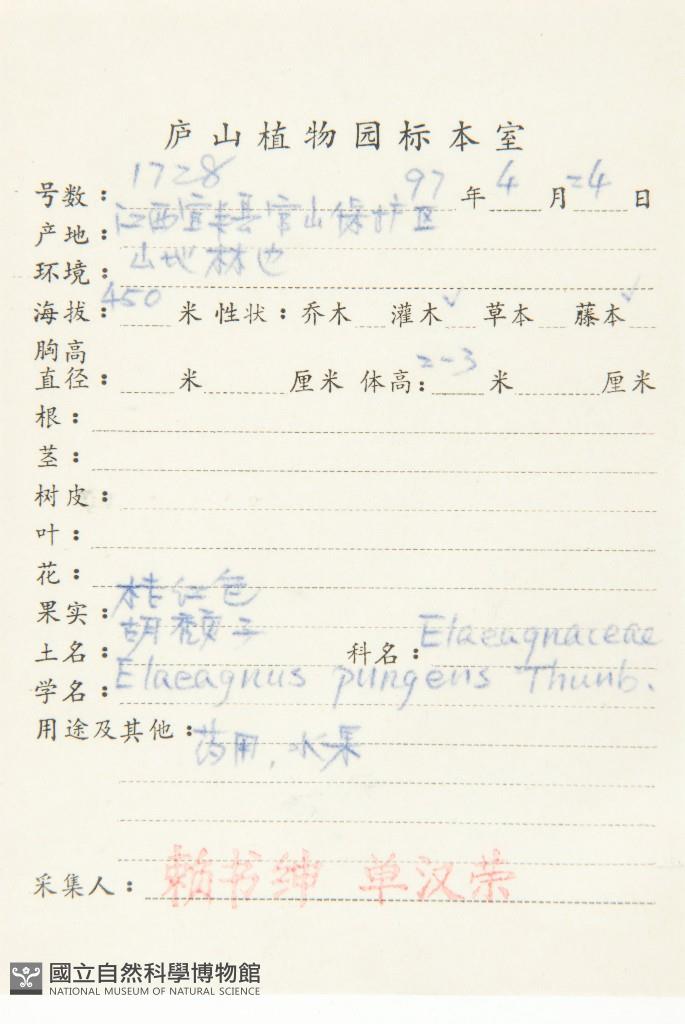 庐山植物园标本室
号数：1728 97年4月24日
产地：江西宜丰县官山保护区
环境：山地林边
海拔：450米 性状：乔木 灌木✓ 草本 藤本✓
胸高
直径： 米 厘米 体高：2-3米 厘米
根：
茎：
树皮：
叶：
花：
果实：桔红色
土名：胡颓子 科名：Elaeagnaceae
学名：Elaeagnus pungens Thunb.
用途及其他：药用，水果
采集人：赖书绅 单汉荣
國立自然科學博物館
NATIONAL MUSEUM OF NATURAL SCIENCE